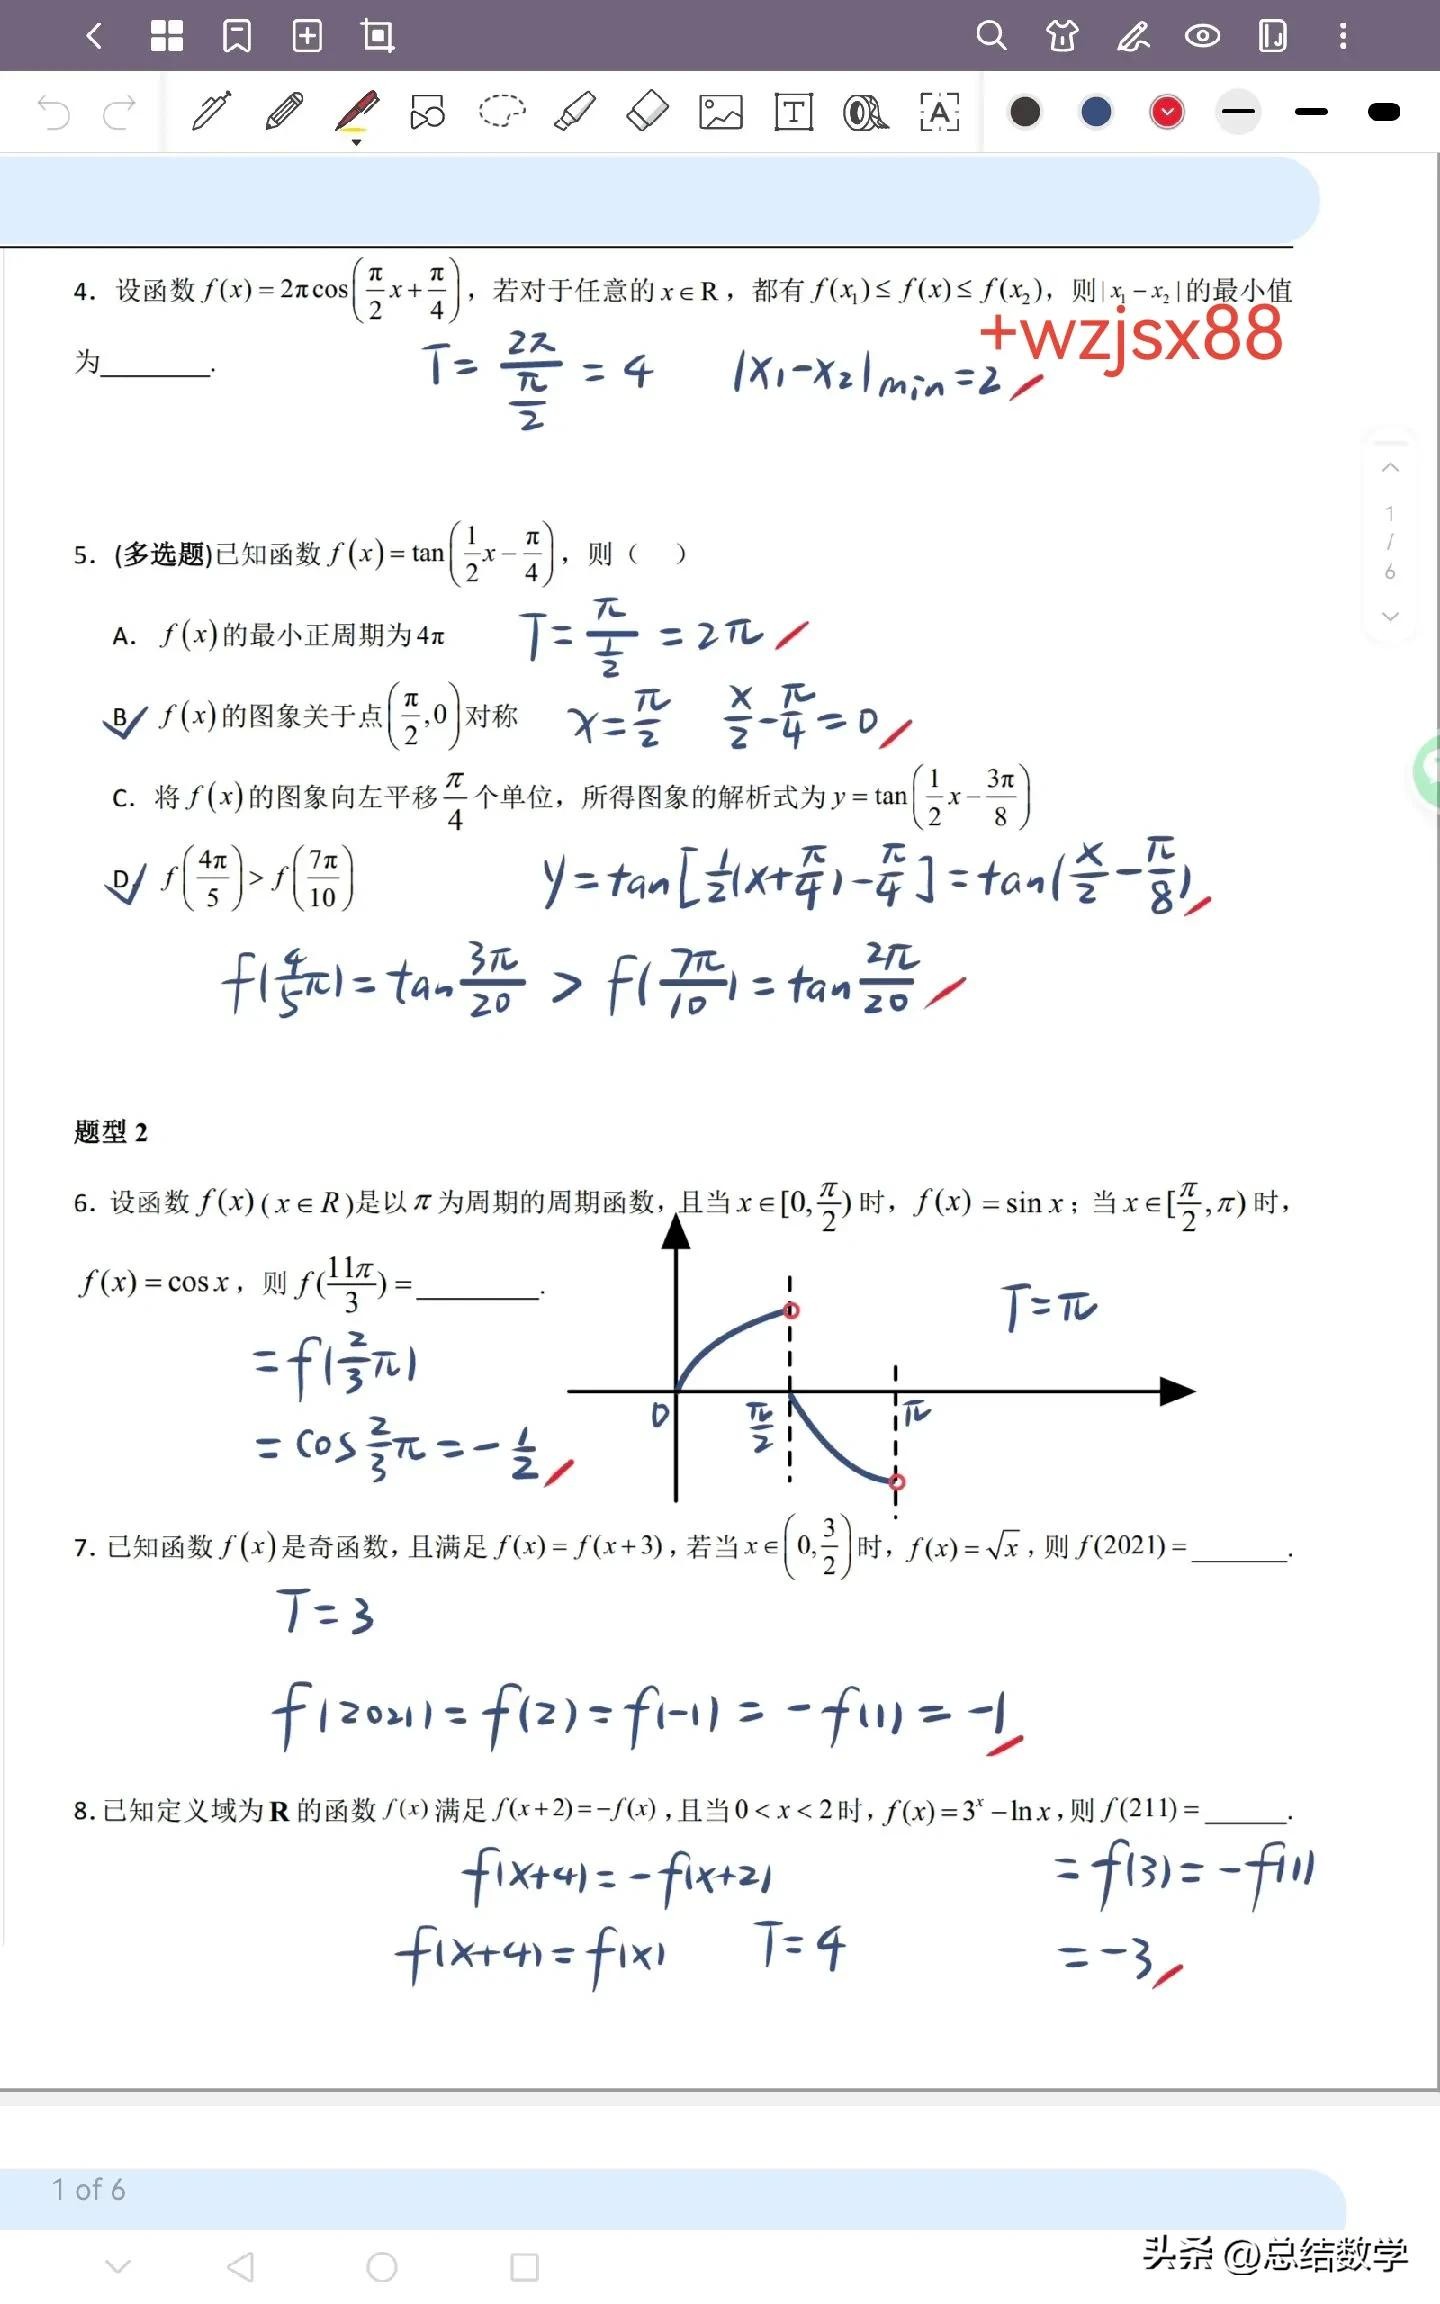 4. 设函数 f(x)=2πcos(π/2 x+π/4)，若对于任意的 x∈R，都有 f(x₁)≤f(x)≤f(x₂)，则|x₁-x₂|的最小值
+wzjsx88
为________.
T= 2π/(π/2) = 4 |x₁-x₂|min=2
5. (多选题)已知函数 f(x)=tan(1/2 x-π/4)，则（ ）
A. f(x)的最小正周期为4π T= π/(1/2) =2π
B. f(x)的图象关于点(π/2,0)对称 x=π/2 x/2-π/4=0
C. 将 f(x)的图象向左平移π/4个单位，所得图象的解析式为 y=tan(1/2 x-3π/8)
D. f(4π/5)>f(7π/10) y=tan[1/2(x+π/4)-π/4]=tan(x/2-π/8)
f(4/5π)=tan3π/20 > f(7π/10)=tan2π/20
题型 2
6. 设函数 f(x)(x∈R)是以π为周期的周期函数，且当 x∈[0,π/2)时，f(x)=sin x；当 x∈[π/2,π)时，
f(x)=cosx，则 f(11π/3)=________.
T=π
=f(2/3π)
0 π/2 π
=cos2/3π=-1/2
7. 已知函数 f(x)是奇函数，且满足 f(x)=f(x+3)，若当 x∈(0,3/2)时，f(x)=√x，则 f(2021)=______.
T=3
f(2021)=f(2)=f(-1)=-f(1)=-1
8. 已知定义域为 R 的函数 f(x)满足 f(x+2)=-f(x)，且当 0<x<2时，f(x)=3ˣ-lnx，则 f(211)=______.
f(x+4)=-f(x+2) =f(3)=-f(1)
f(x+4)=f(x) T=4 =-3
1
/
6
1 of 6
头条 @总结数学